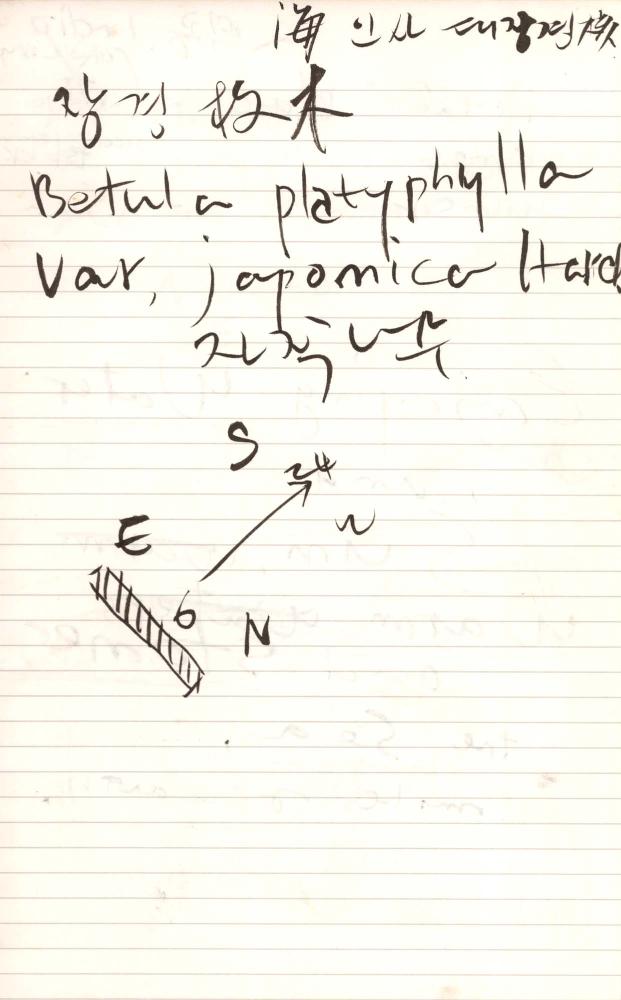 海 인사 대장경板
장경 板木
Betula platyphylla
Var, japonica Hara
자작나무
S
E
N